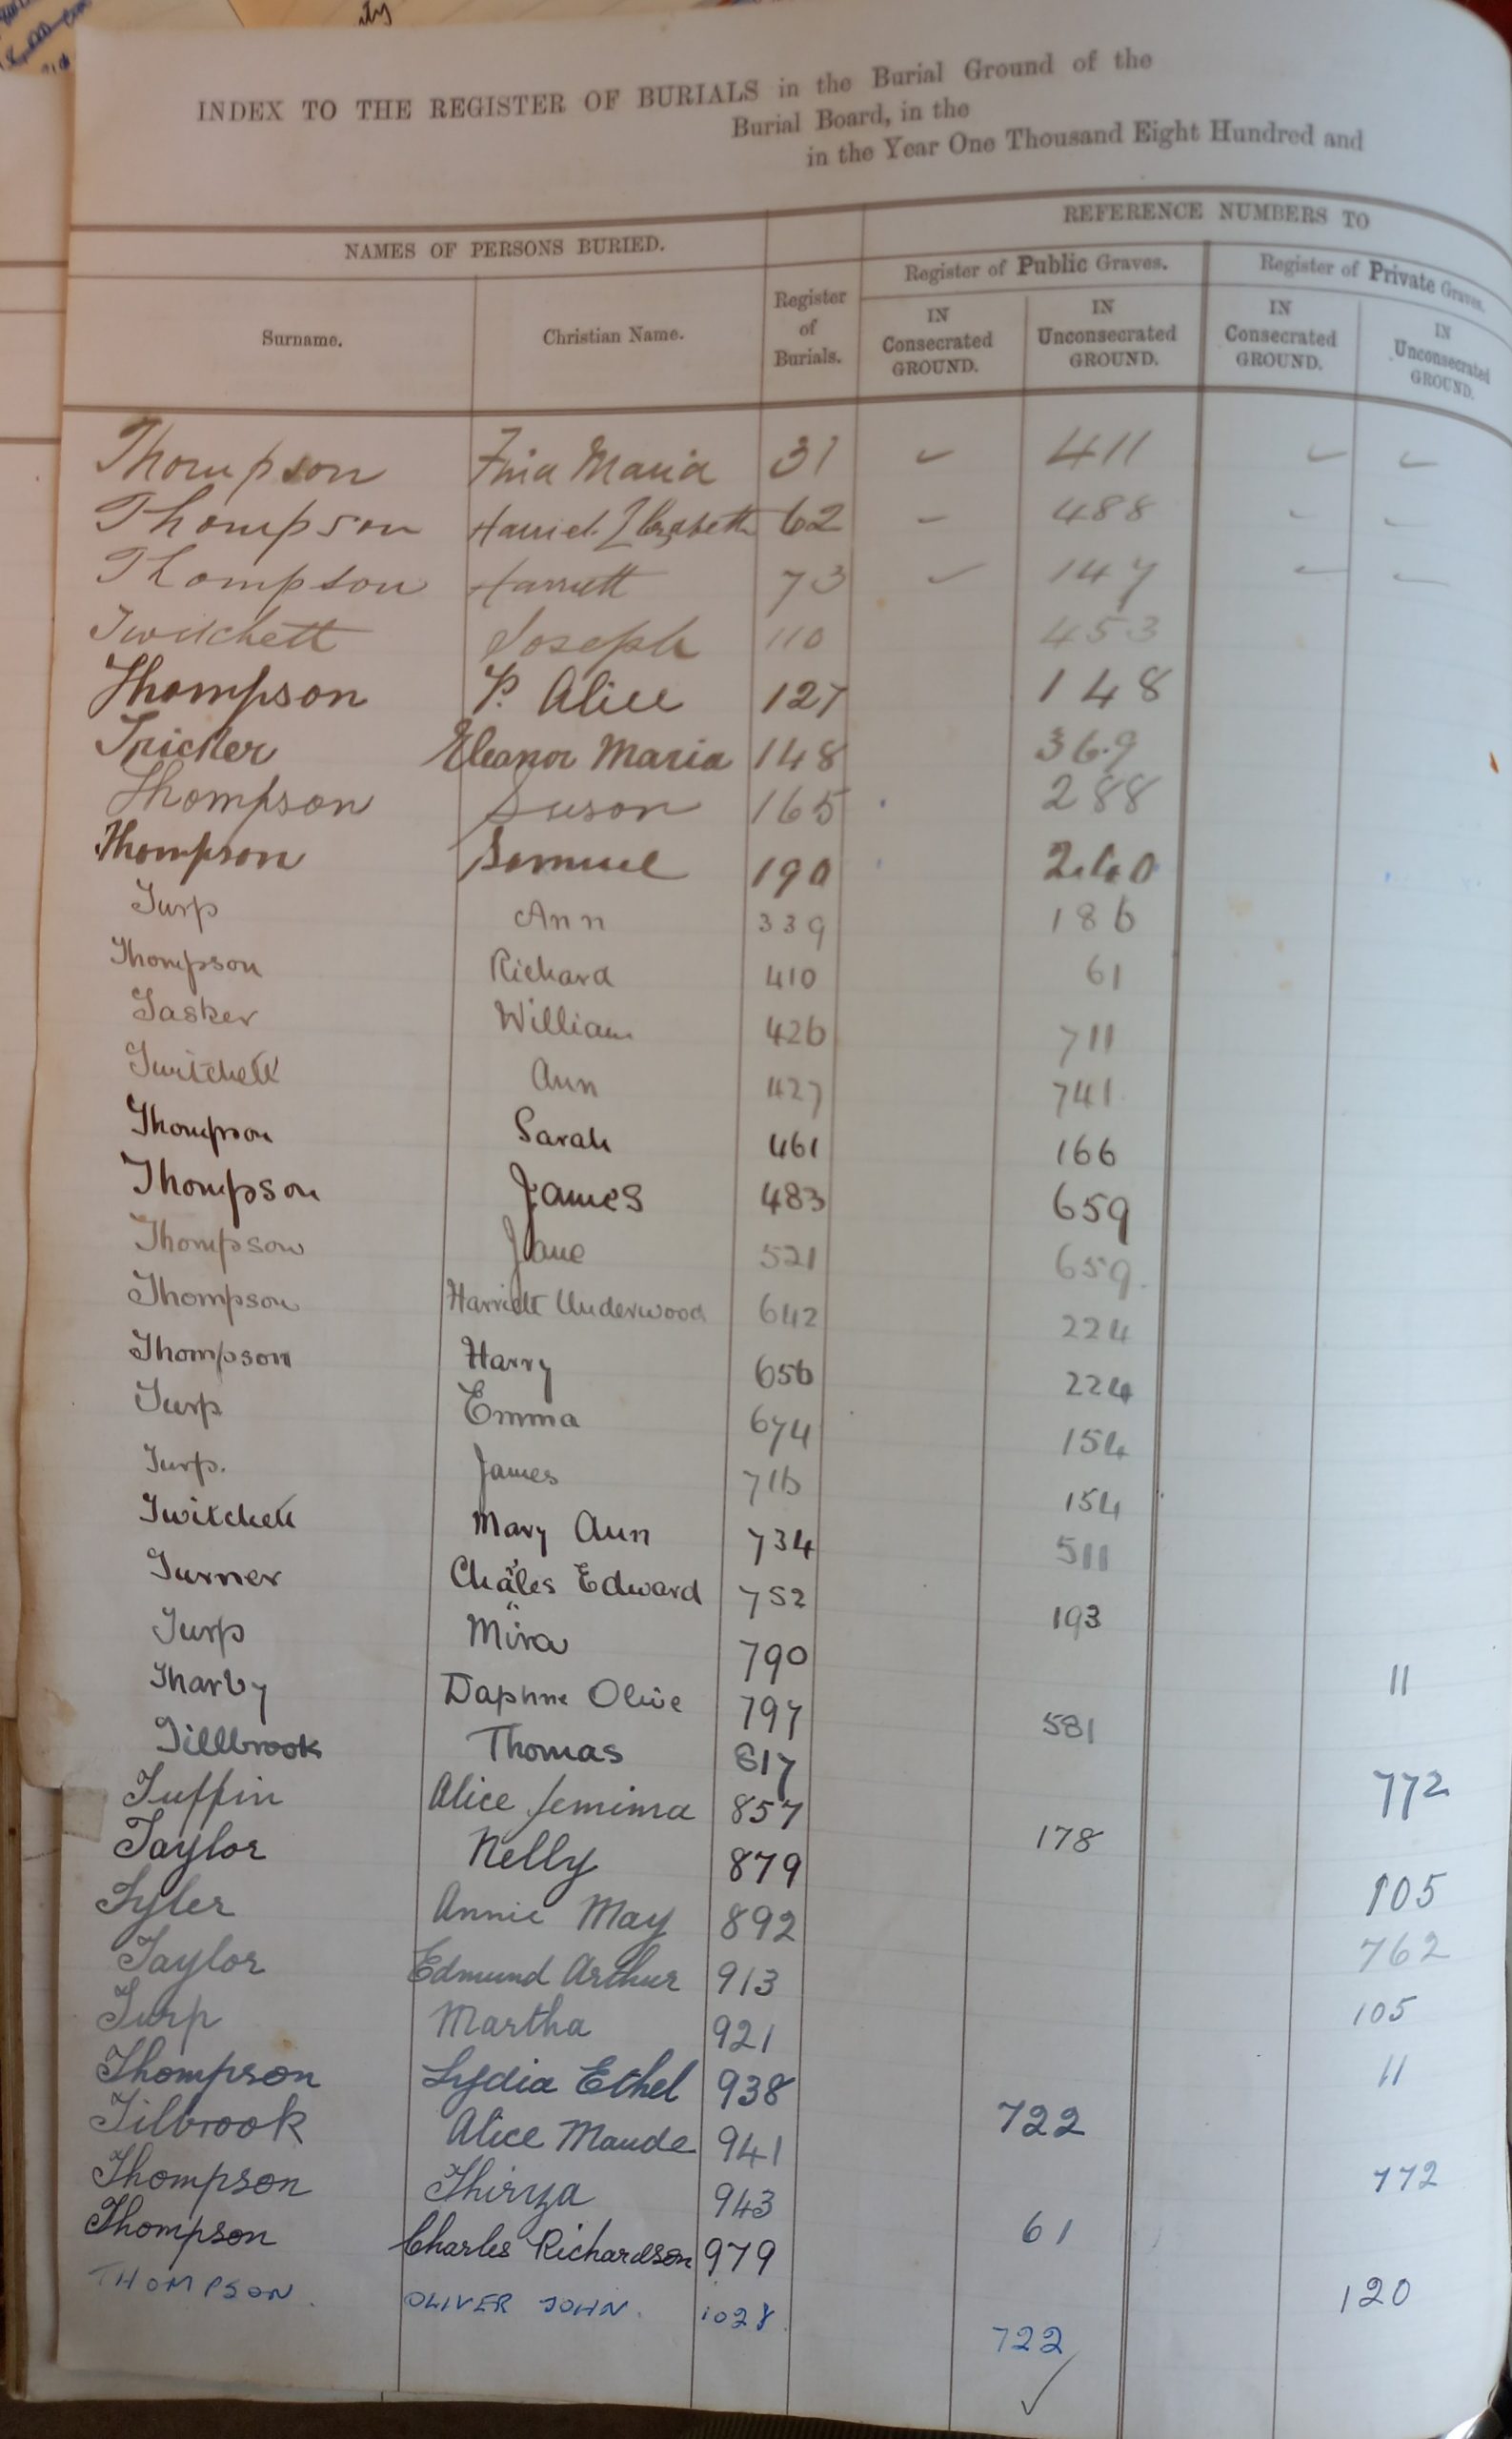 INDEX TO THE REGISTER OF BURIALS in the Burial Ground of the
Burial Board, in the
in the Year One Thousand Eight Hundred and
NAMES OF PERSONS BURIED.
REFERENCE NUMBERS TO
Register of Public Graves.
Register of Private Graves.
Surname.
Christian Name.
Register of Burials.
IN Consecrated GROUND.
IN Unconsecrated GROUND.
IN Consecrated GROUND.
IN Unconsecrated GROUND.
Thompson Maria 31 – 411 – –
Thompson Harriet Elizabeth 62 – 488 – –
Thompson Harriett 73 – 147 – –
Twitchett Joseph 110 453
Thompson P. Alice 127 148
Tricker Eleanor Maria 148 369
Thompson Suson 165 288
Thompson Samuel 190 260
Turp Ann 339 186
Thompson Richard 410 61
Tasker William 426 711
Twitchett Ann 427 741
Thompson Sarah 461 166
Thompson James 483 659
Thompson Jane 521 659.
Thompson Harriett Underwood 642 224
Thompson Harry 656 224
Turp Emma 674 154
Turp. James 716 154
Twitchett Mary Ann 734 511
Turner Chales Edward 752 193
Turp Mira 790 11
Tharby Daphne Olive 797 581
Tillbrook Thomas 817 772
Tuffin Alice Jemima 857 178
Taylor Nelly 879 105
Tyler Annie May 892 762
Taylor Edmund Arthur 913 105
Turp Martha 921 11
Thompson Lydia Ethel 938 722
Tilbrook Alice Maude 941 772
Thompson Thirza 943 61
Thompson Charles Richardson 979 120
THOMPSON. OLIVER JOHN. 1028. 722
✓